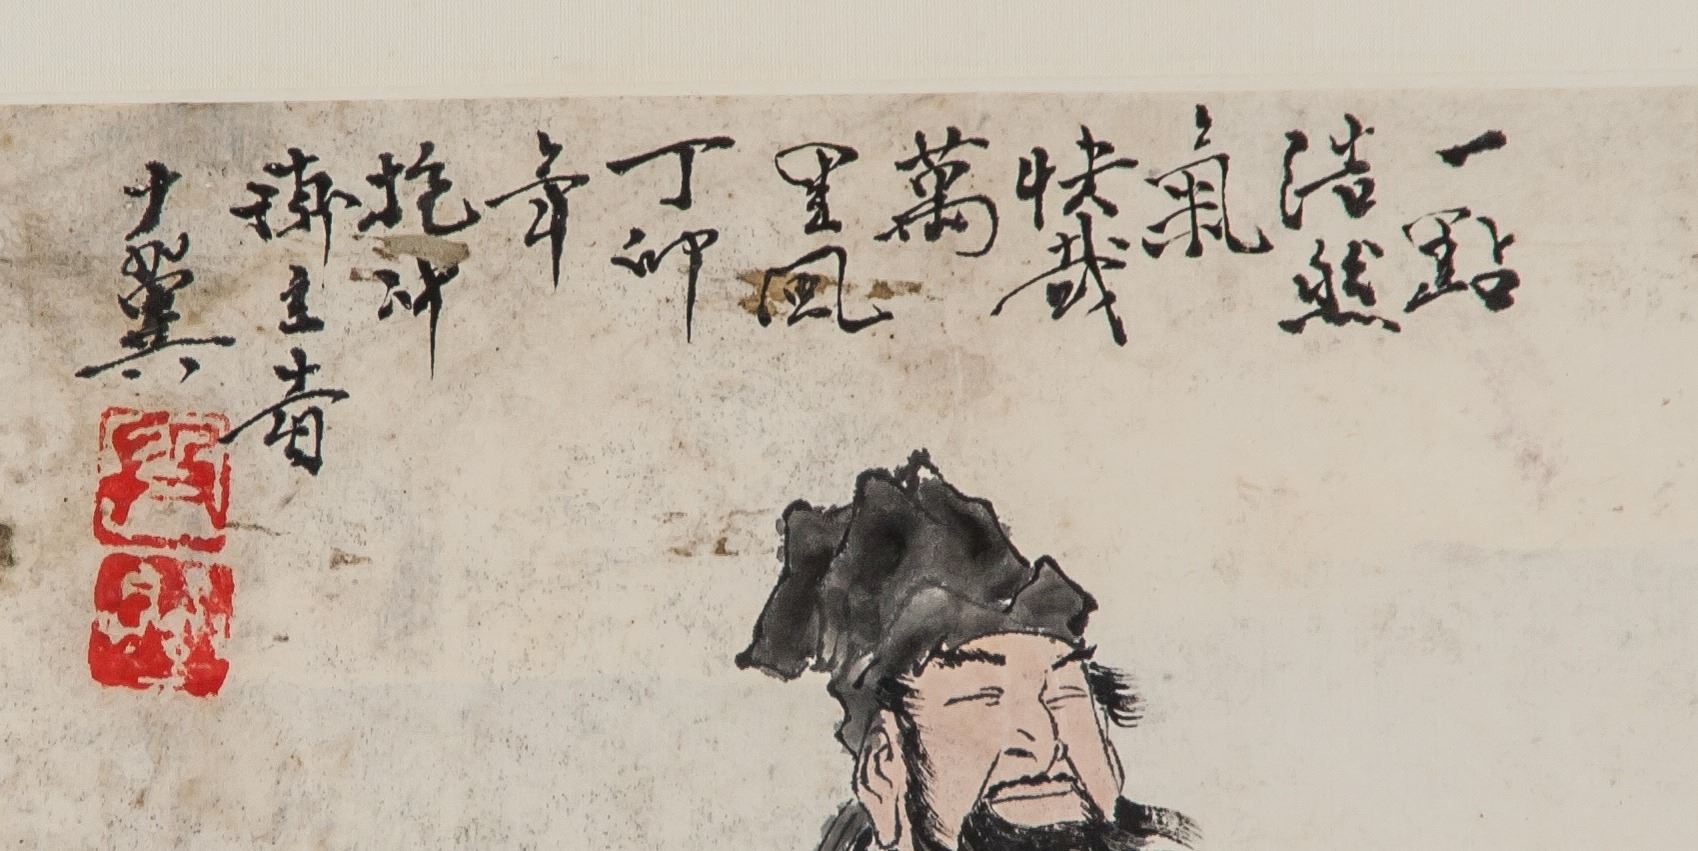 一點
浩然
氣
快哉
萬
里風
丁卯
年
抱冲
齋主者
十翼